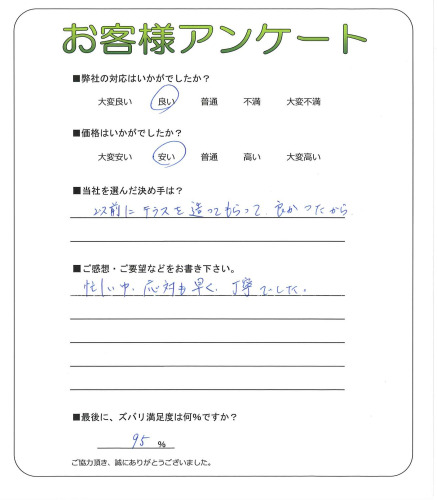 お客様アンケート
■弊社の対応はいかがでしたか？
大変良い 良い 普通 不満 大変不満
■価格はいかがでしたか？
大変安い 安い 普通 高い 大変高い
■当社を選んだ決め手は？
以前にテラスを造ってもらって、良かったから
■ご感想・ご要望などをお書き下さい。
忙しい中、応対も早く、丁寧でした。
■最後に、ズバリ満足度は何%ですか？
95 %
ご協力頂き、誠にありがとうございました。